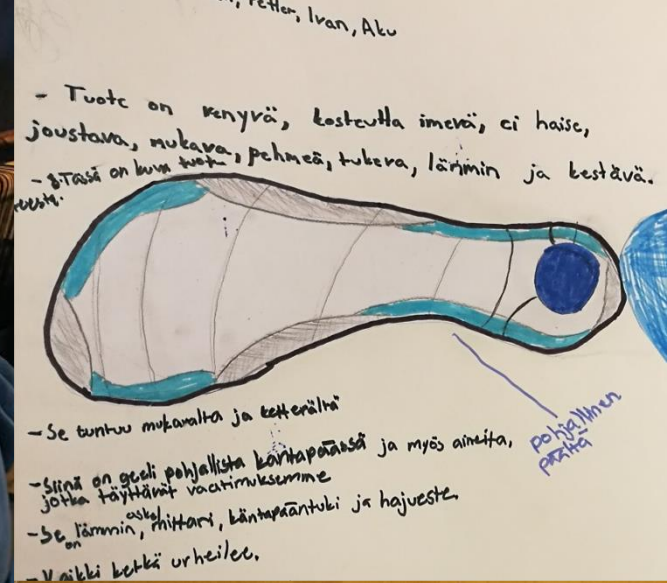 Petter, Ivan, Aku
- Tuote on venyvä, kosteutta imevä, ei haise,
joustava, mukava, pehmeä, tukeva, lämmin ja kestävä.
- Tässä on kuva tuot
eesta.
pohjallinen
päältä
- Se tuntuu mukavalta ja ketterältä
- Siinä on geeli pohjallista kantapäässä ja myös aineita,
jotka täyttävät vaatimuksemme
- Se on lämmin, askelmittari, kantapääntuki ja hajueste.
- Kaikki ketkä urheilee.